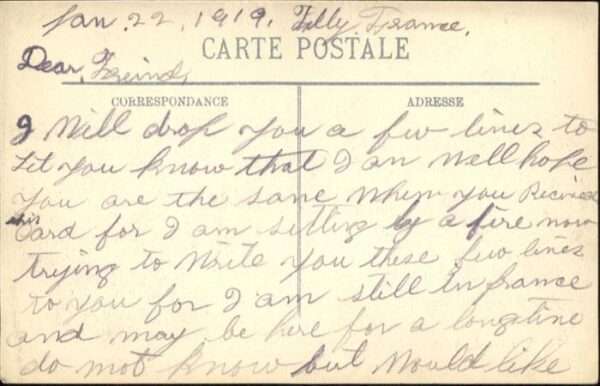 Jan. 22, 1919. Tilly, France.
CARTE POSTALE
Dear, Freind,
CORRESPONDANCE
ADRESSE
I Will drop you a few lines to
Let you know that I am Well hope
you are the same When you Recived
this
Card for I am sitting by a fire now
trying to Write you these few lines
to you for I am still in france
and may be here for a longtime
do not know but Would like